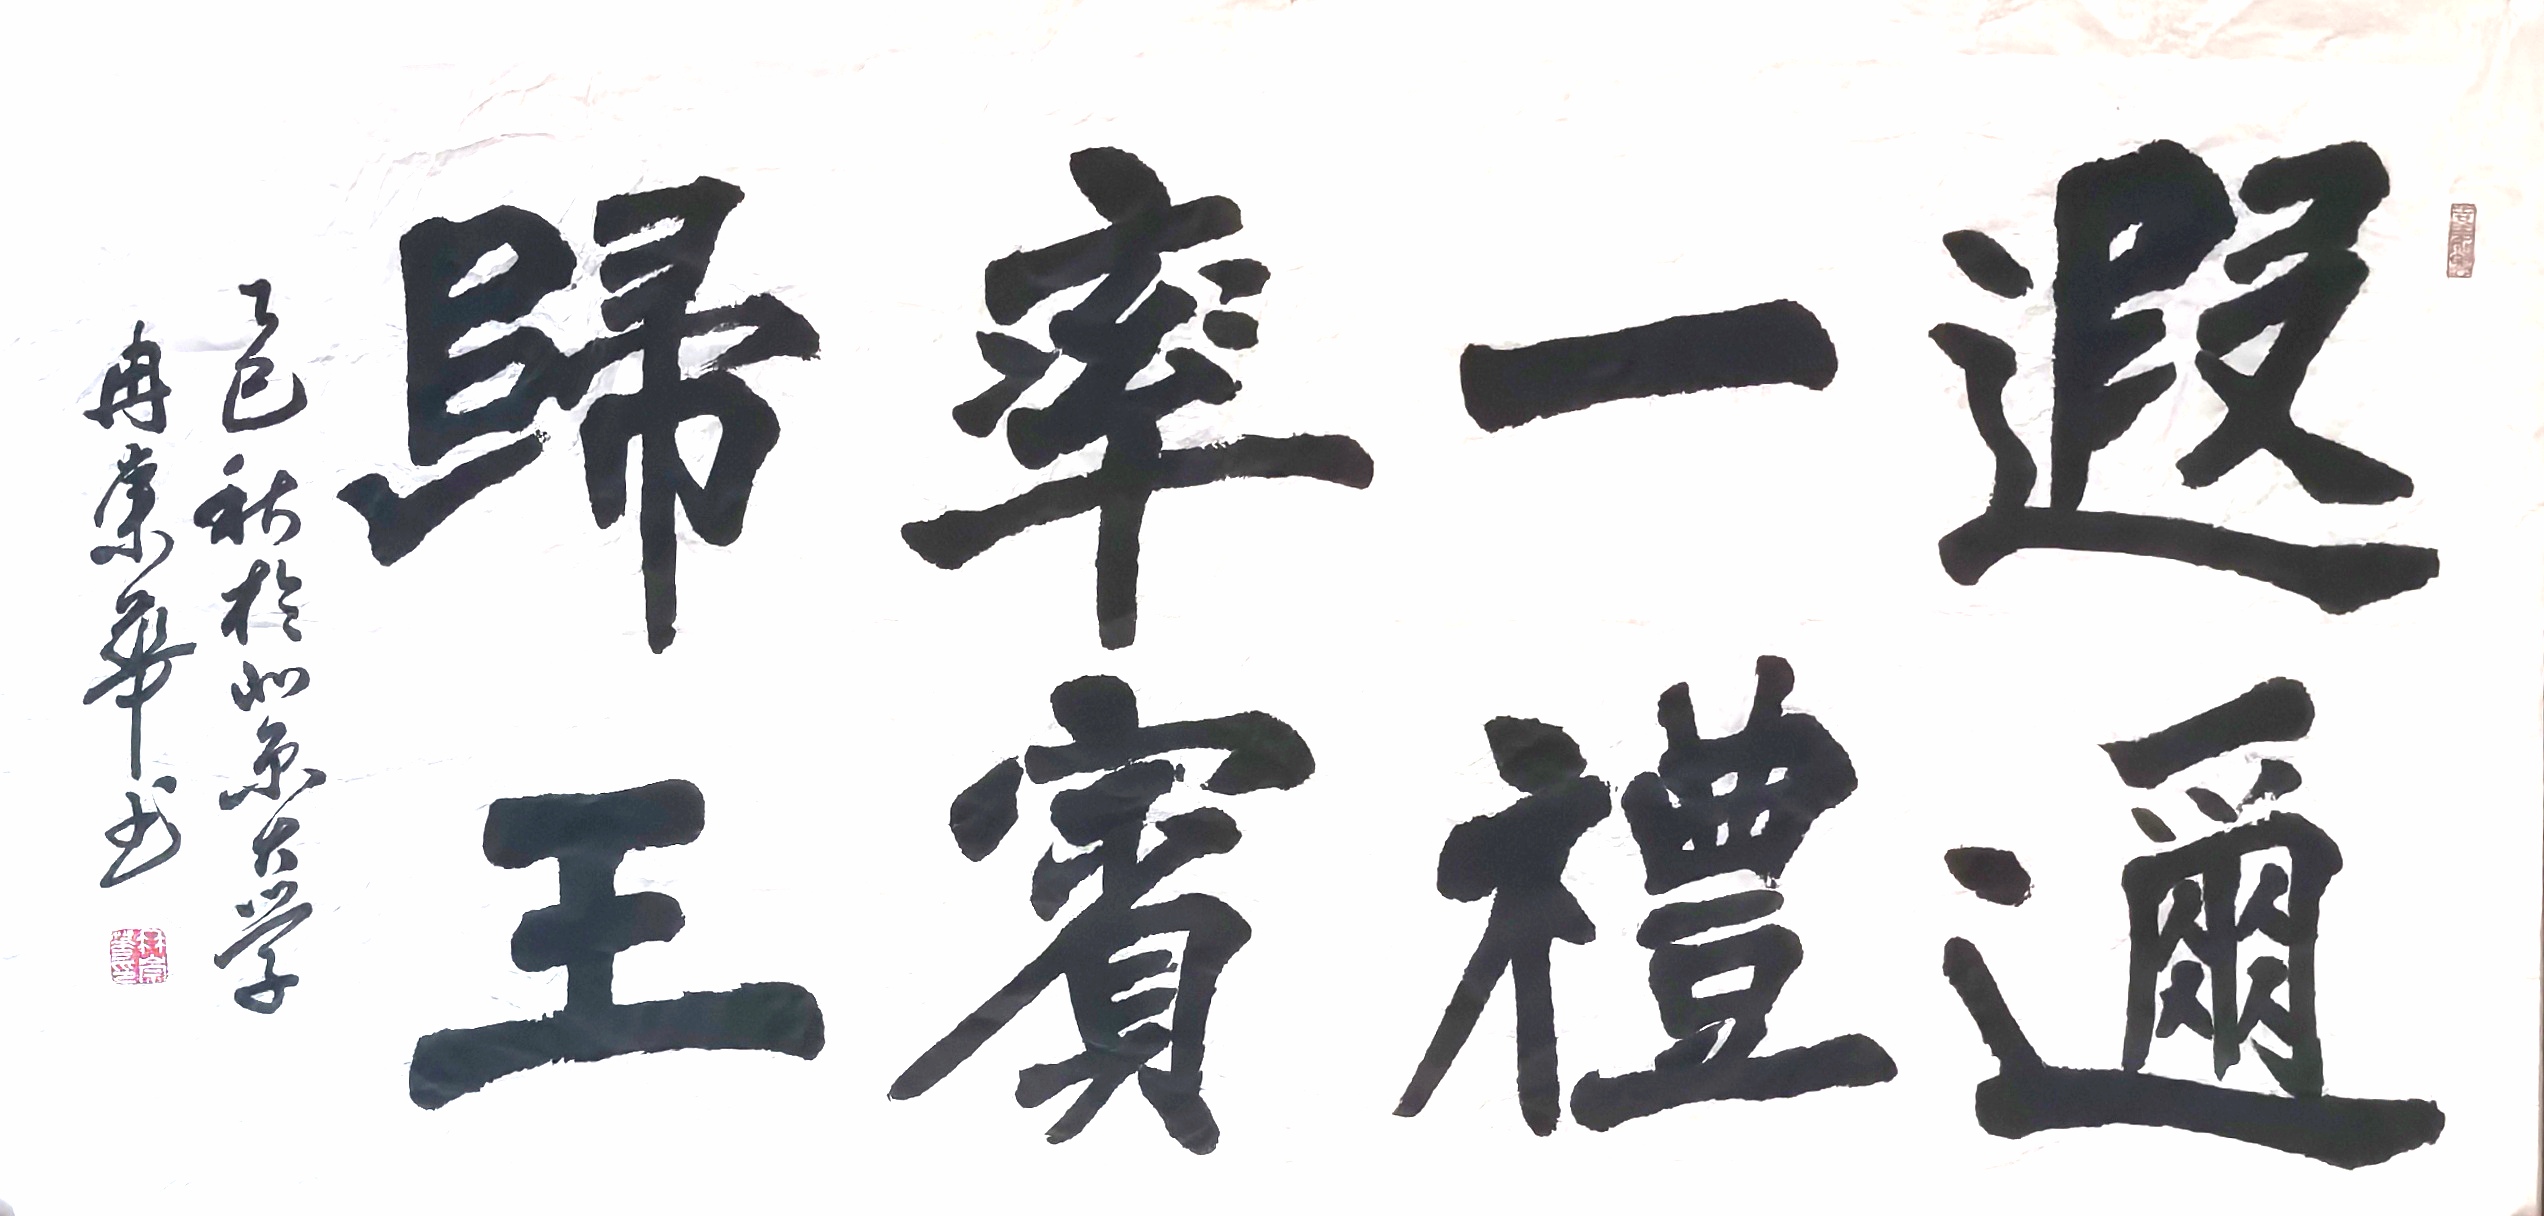 遐邇
一禮
率賓
歸王
乙巳秋於北京大学
冉崇華书